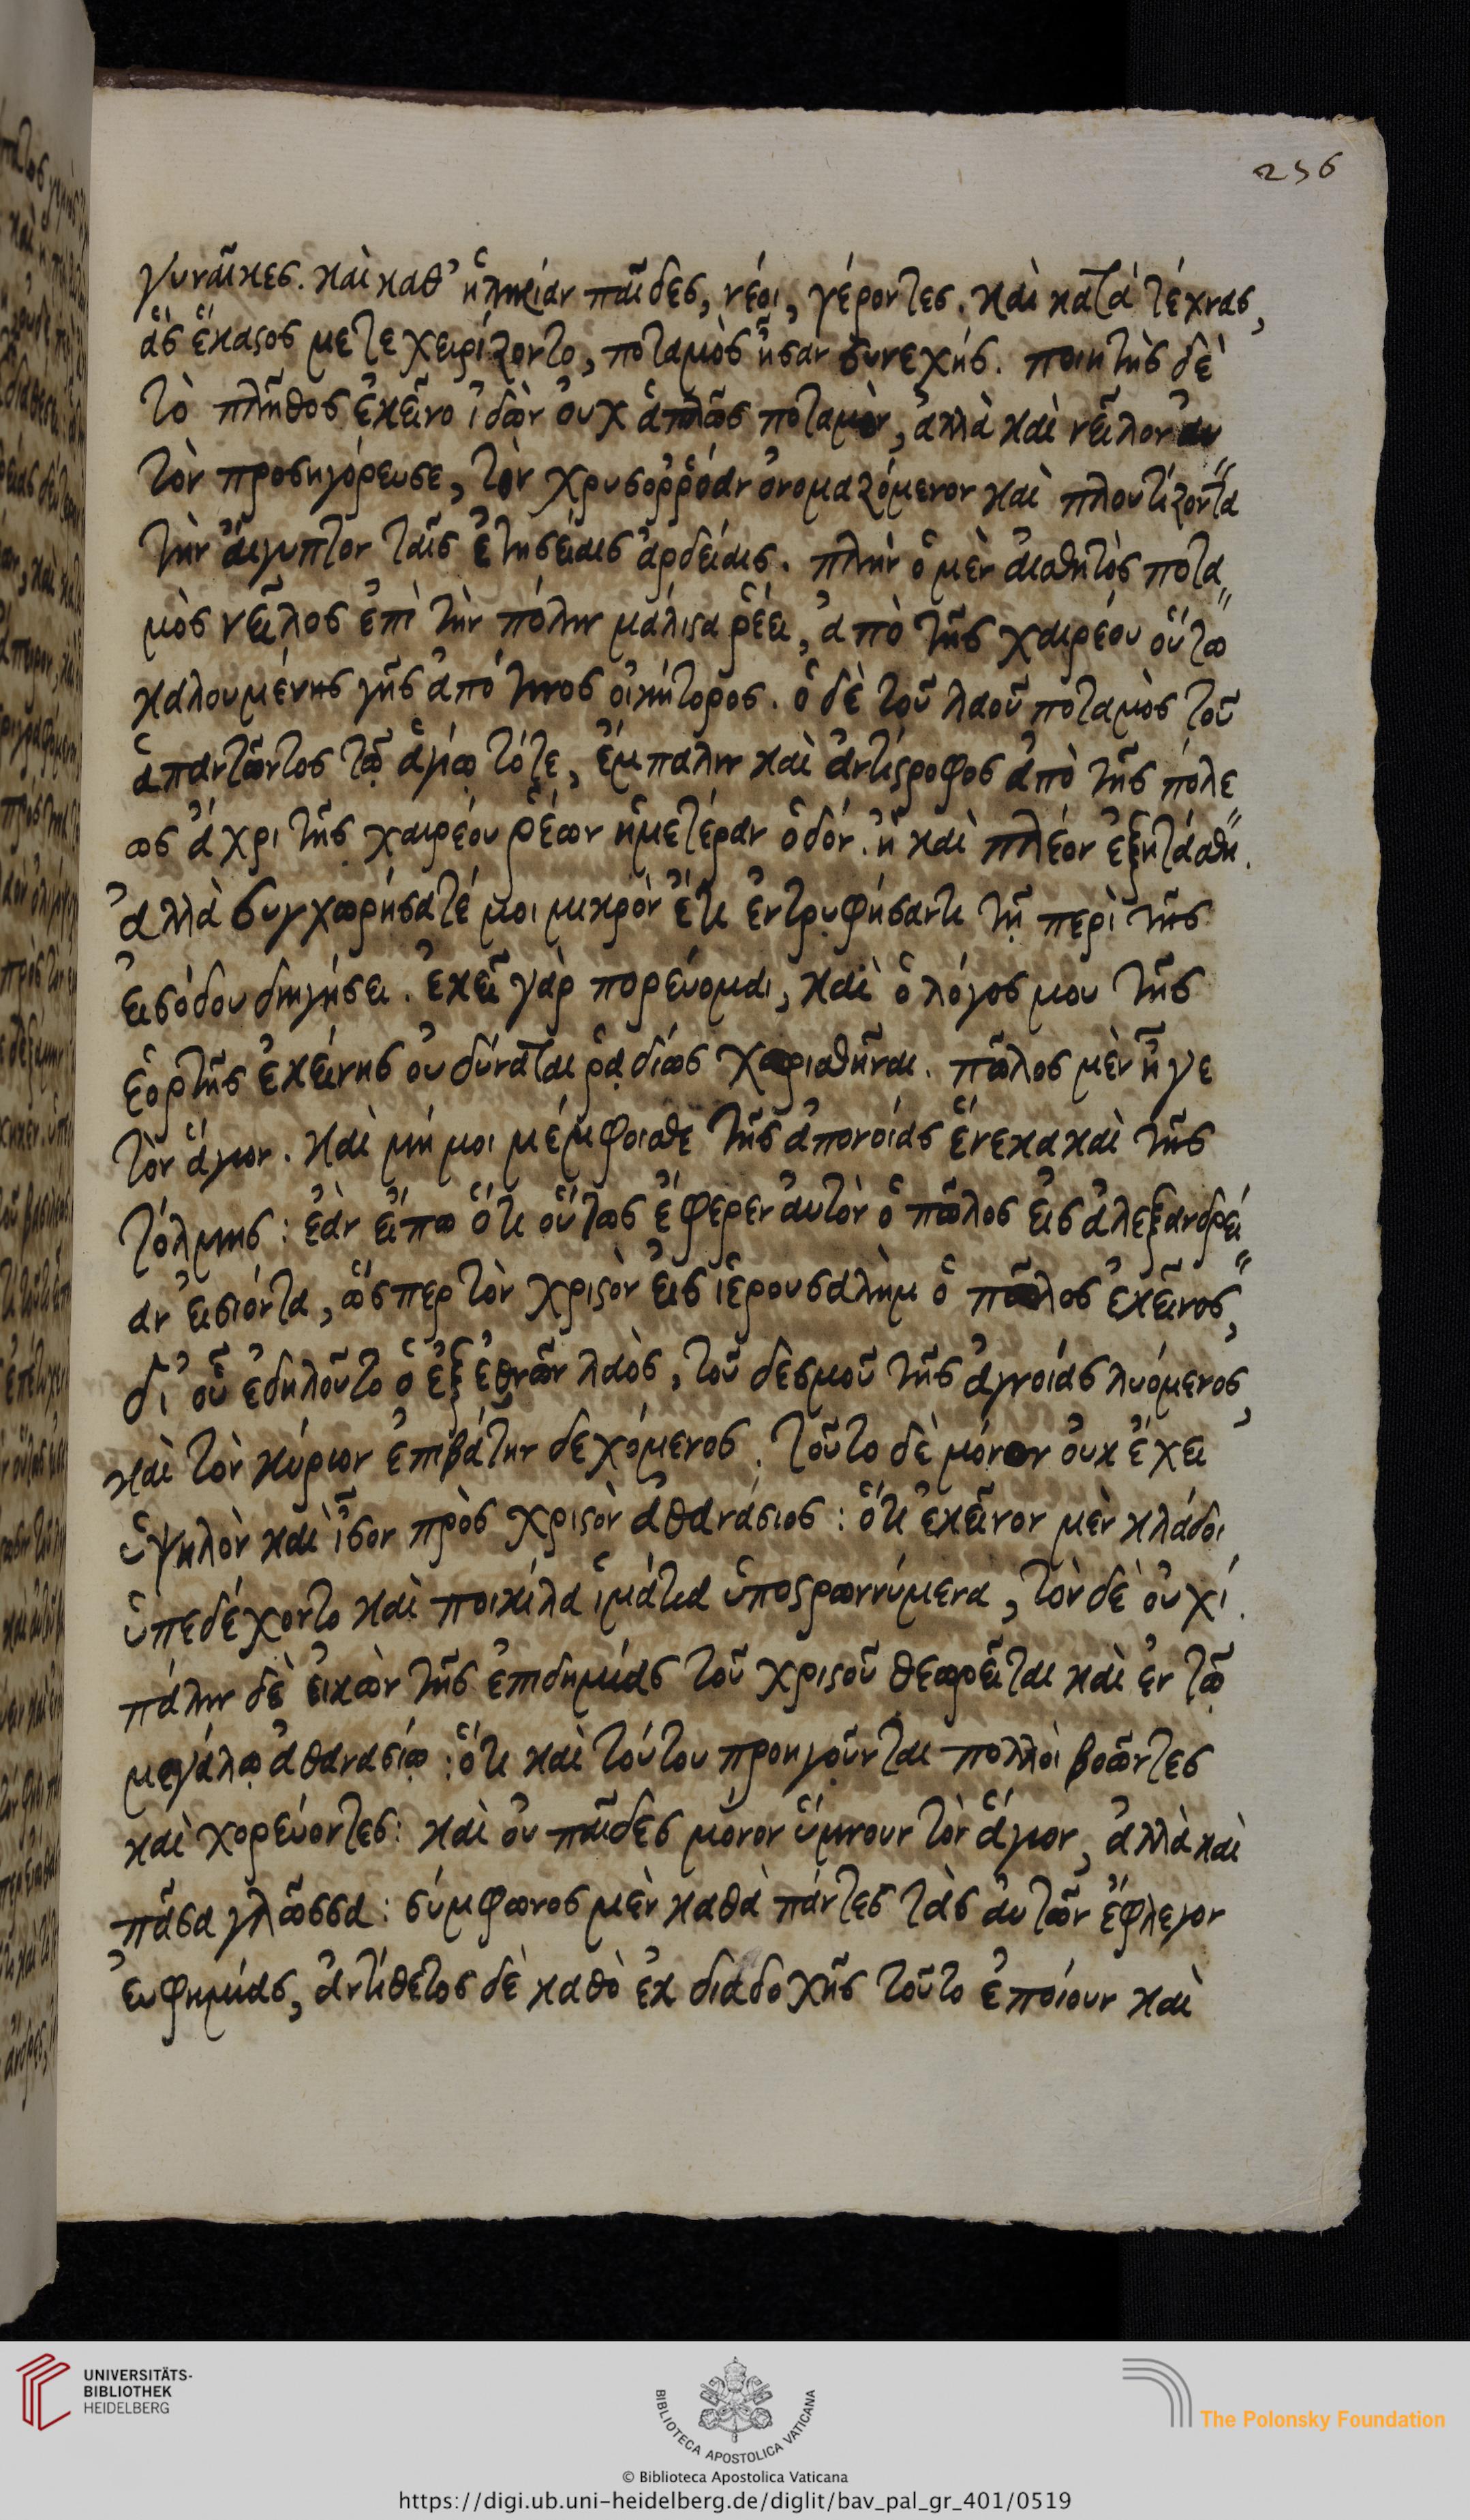 256
γυναῖκες. καὶ καθ' ἡλικίαν παῖδες, νέοι, γέροντες. καὶ κατὰ τέχνας,
ἃς ἕκαστος μετεχειρίζοντο, ποταμὸς ἦσαν συνεχής. ποιητὴς δὲ
τὸ πλῆθος ἐκεῖνο ἰδὼν οὐχ ἁπλῶς ποταμὸν, ἀλλὰ καὶ νεῖλον αυ
τὸν προσηγόρευσε, τὸν χρυσοῤῥόαν ὀνομαζόμενον καὶ πλουτίζοντα
τὴν ἄιγυπτον ταῖς ἐτησείαις ἀρδείαις. πλὴν ὁ μὲν ἀισθητὸς ποτα
μὸς νεῖλος ἐπὶ τὴν πόλιν μάλιστα ῥέει, ἀπὸ τῆς χαιρέου οὕτω
καλουμένης γῆς ἀπό τινος οἰκήτορος. ὁ δὲ τοῦ λαοῦ ποταμὸς τοῦ
ἁπαντῶντος τῷ ἁγίῳ τότε, ἔμπαλιν καὶ ἀντίστροφος ἀπὸ τῆς πόλε
ως ἄχρι τῆς χαιρέου ῥέων ἡμετέραν ὁδόν. ἢ καὶ πλέον ἐξητάσθη.
ἀλλὰ συγχωρήσατέ μοι μικρὸν ἔτι ἐντρυφήσαντι τῇ περὶ τῆς
εἰσόδου διηγήσει. ἐκεῖ γὰρ πορεύομαι, καὶ ὁ λόγος μου τῆς
ἑορτῆς ἐκείνης οὐ δύναται ῥᾳδίως χωρισθῆναι. πῶλος μὲν ἦγε
τὸν ἅγιον. καὶ μή μοι μέμφοισθε τῆς ἀπονοίας ἕνεκα καὶ τῆς
τόλμης: ἐὰν εἴπω ὅτι οὕτως ἔφερεν ἀυτὸν ὁ πῶλος εἰς ἀλεξανδρεί
αν εἰσιόντα, ὥσπερ τὸν χριστὸν εἰς ἱερουσαλὴμ ὁ πῶλος ἐκεῖνος,
δι' οὗ ἐδηλοῦτο ὁ ἐξ ἐθνῶν λαὸς, τοῦ δεσμοῦ τῆς ἀγνοίας λυόμενος,
καὶ τὸν κύριον ἐπιβάτην δεχόμενος. τοῦτο δὲ μόνον οὐκ ἔχει
ὑψηλὸν καὶ ἶσον πρὸς χριστὸν ἀθανάσιος: ὅτι ἐκεῖνον μὲν κλάδοι
ὑπεδέχοντο καὶ ποικίλα ἱμάτια ὑποστρωννύμενα, τὸν δὲ οὐχί.
πάλιν δὲ εἰκὼν τῆς ἐπιδημίας τοῦ χριστοῦ θεωρεῖται καὶ ἐν τῷ
μεγάλῳ ἀθανασίῳ: ὅτι καὶ τούτου προηγοῦνται πολλοὶ βοῶντες
καὶ χορεύοντες: καὶ οὐ παῖδες μόνον ὕμνουν τὸν ἅγιον, ἀλλὰ καὶ
πᾶσα γλῶσσα: σύμφωνος μὲν καθὰ πάντες τὰς ἀυτῶν ἔφλεγον
ἐυφημίας, ἀντίθετος δὲ καθὸ ἐκ διαδοχῆς τοῦτο ἐποίουν καὶ
UNIVERSITÄTS-
BIBLIOTHEK
HEIDELBERG
BIBLIOTECA APOSTOLICA VATICANA
The Polonsky Foundation
© Biblioteca Apostolica Vaticana
https://digi.ub.uni-heidelberg.de/diglit/bav_pal_gr_401/0519